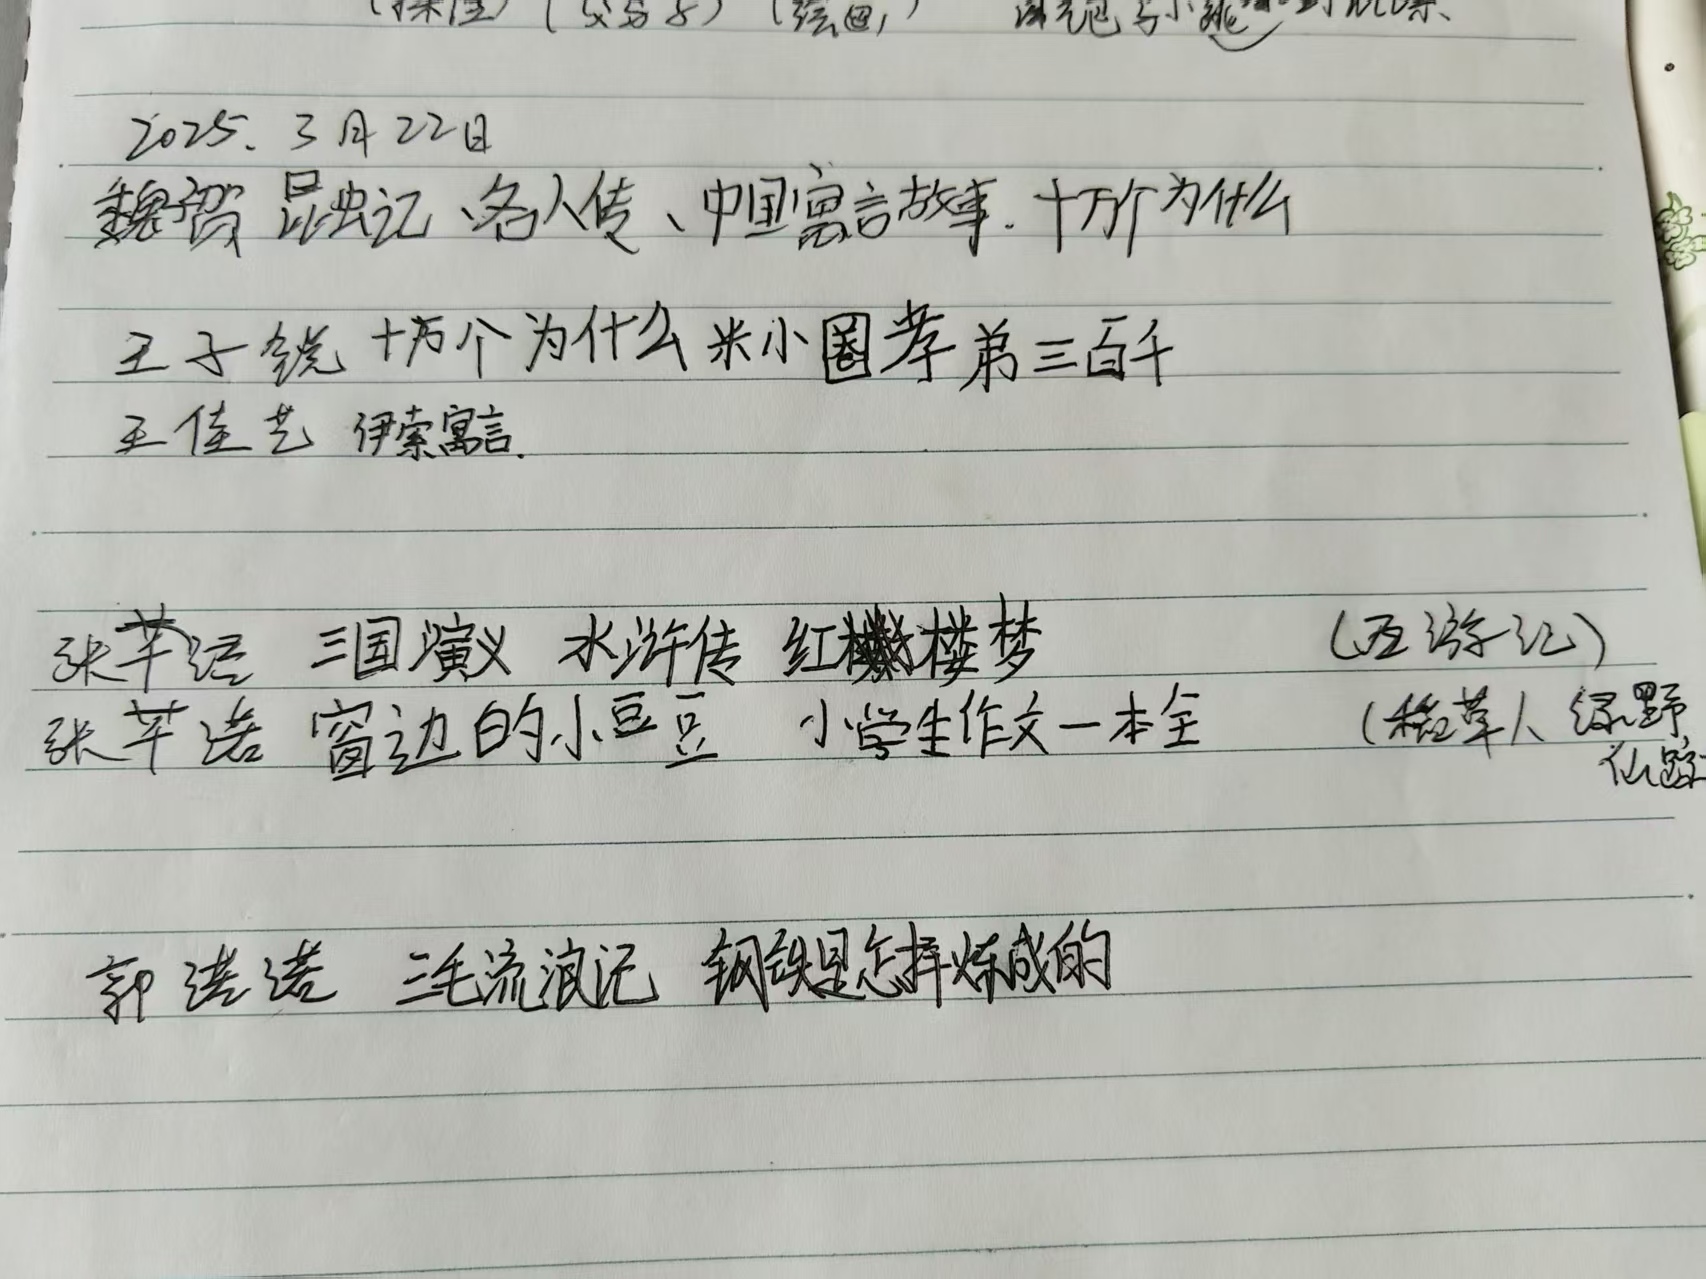 (父与子) (绘画)
2025. 3月22日
魏贺 昆虫记、名人传、中国寓言故事. 十万个为什么
王子锐 十万个为什么 米小圈 孝弟三百千
王佳艺 伊索寓言.
张芊语 三国演义 水浒传 红楼梦 (西游记)
张芊诺 窗边的小豆豆 小学生作文一本全 (稻草人 绿野
仙踪
郭诺诺 三毛流浪记 钢铁是怎样炼成的